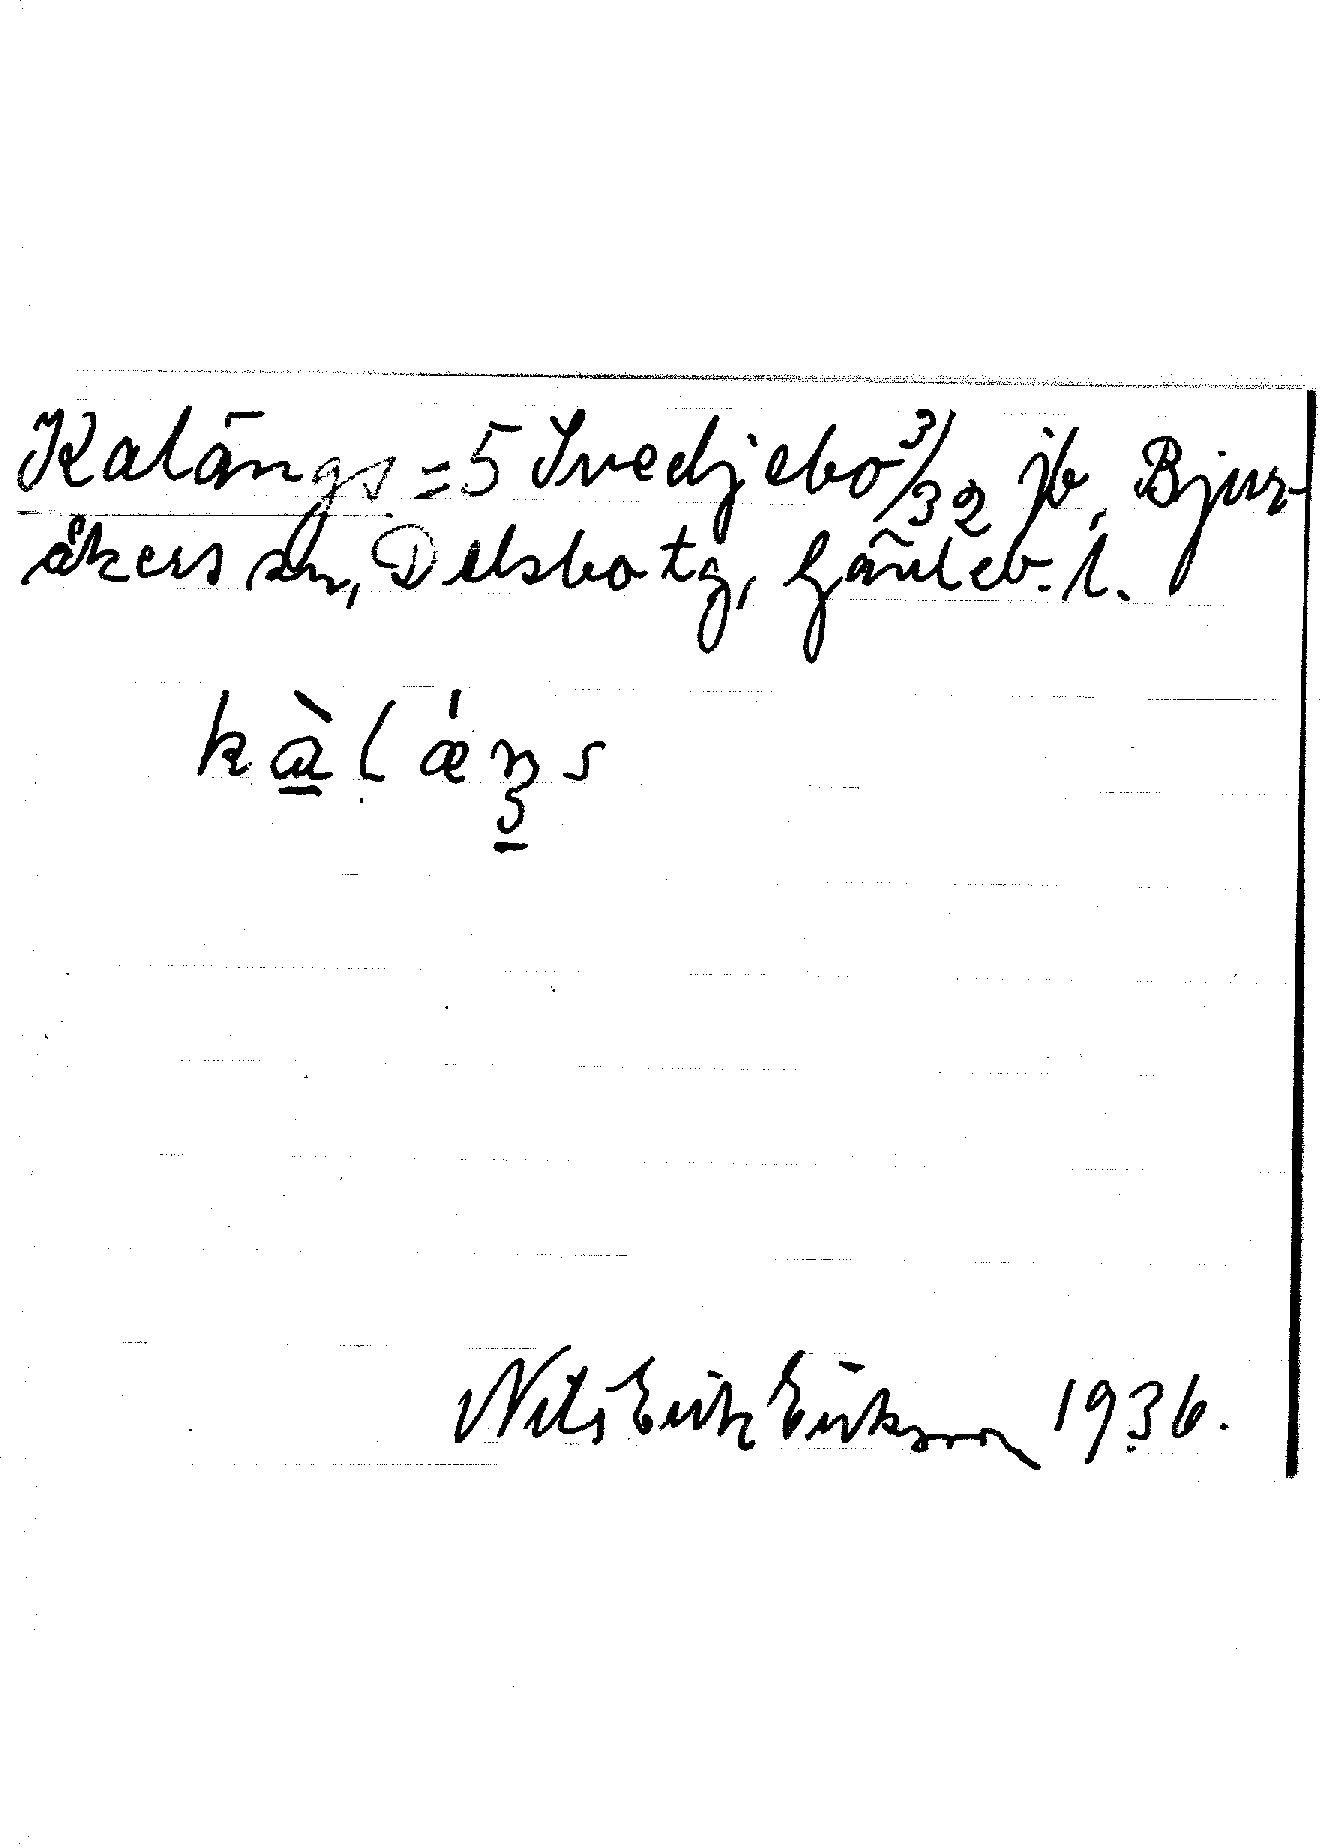 Kalängs = 5 Svedjebo 3/32 jb, Bjur-
åkers sn, Delsbo tg, Gävleb. l.
kàlǽŋs
Nils Erik Erikson 1936.